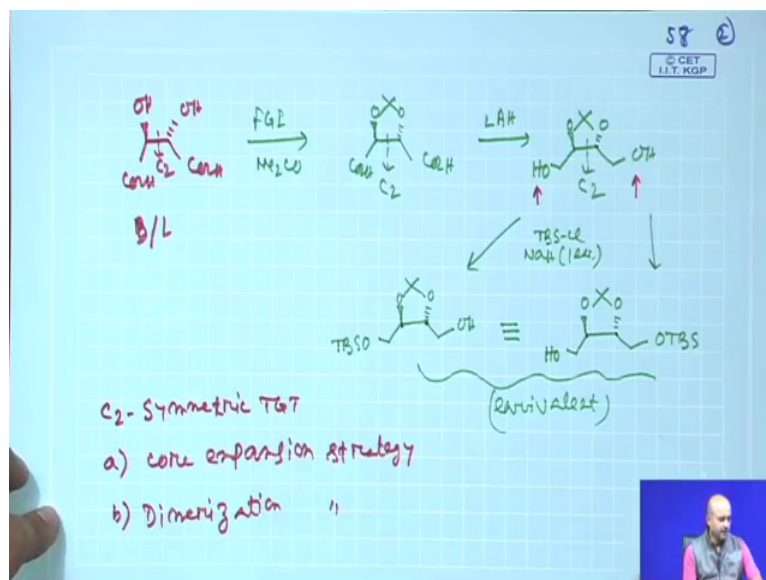 58 ②
© CET
I.I.T. KGP
OH OH
FGI
Me2CO
CO2H C2 CO2H
D/L
O O
CO2H C2 CO2H
LAH
O O
HO OH
C2
TBS-Cl
NaH (1 eq.)
O O
TBSO OH
≡
O O
HO OTBS
(equivalent)
C2-Symmetric TGT
a) core expansion strategy
b) Dimerization "